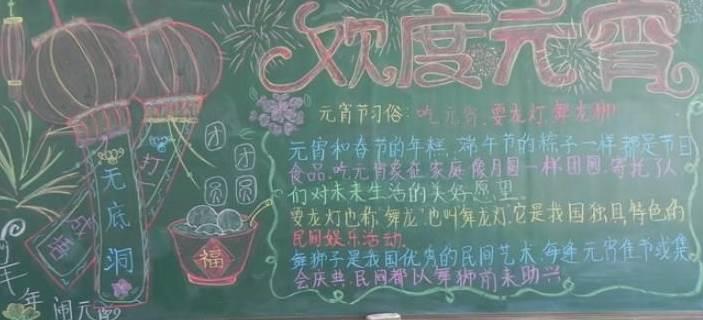 欢度元宵
元宵节习俗:吃元宵、耍龙灯、舞龙狮
元宵和春节的年糕,端午节的粽子一样,都是节日
食品。吃元宵象征家庭像月圆一样团圆,寄托了人
们对未来生活的美好愿望。
耍龙灯也称"舞龙"也叫舞龙灯,它是我国独具特色的
民间娱乐活动。
舞狮子是我国优秀的民间艺术,每逢元宵佳节或集
会庆典,民间都以舞狮前来助兴
团
团
圆
圆
福
无底洞
打
成语
年
闹元宵